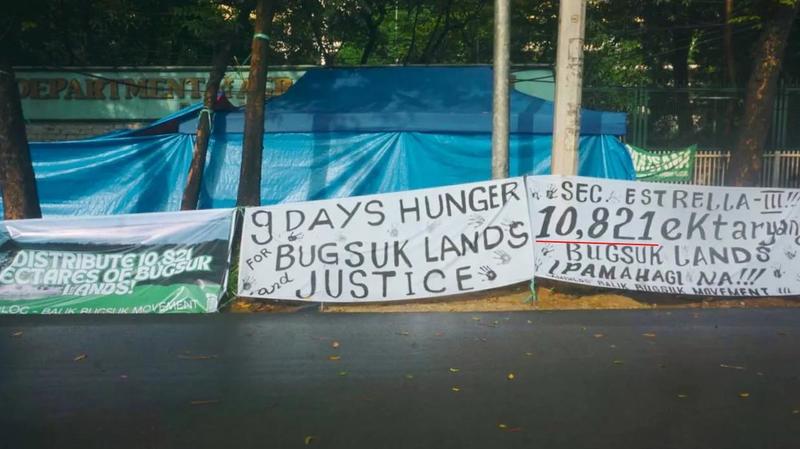 DEPARTMENT
DISTRIBUTE 10,821
ECTARES OF BUGSUK
LANDS!
BALIK BUGSUK MOVEMENT
9 DAYS HUNGER
FOR BUGSUK LANDS
and JUSTICE
SEC. ESTRELLA III!!
10,821 eKtaryang
BUGSUK LANDS
IPAMAHAGI NA!!!
BALIK BUGSUK MOVEMENT !!!